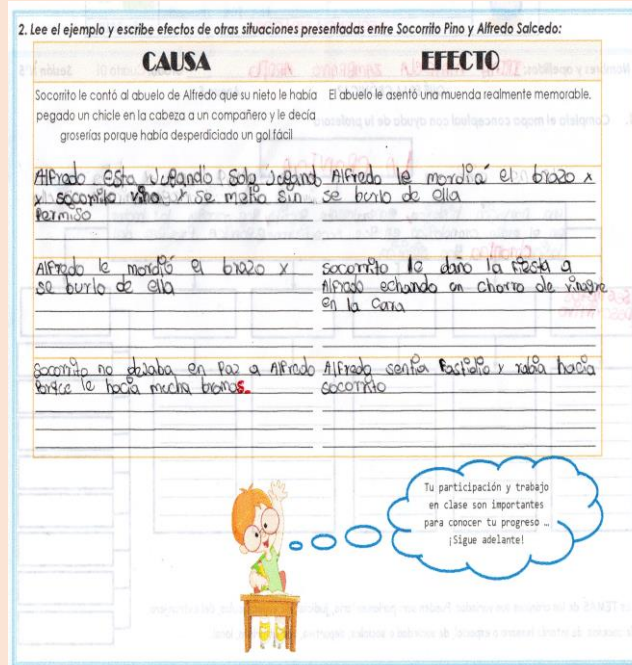 2. Lee el ejemplo y escribe efectos de otras situaciones presentadas entre Socorrito Pino y Alfredo Salcedo:
CAUSA
EFECTO
Socorrito le contó al abuelo de Alfredo que su nieto le había
pegado un chicle en la cabeza a un compañero y le decía
groserías porque había desperdiciado un gol fácil
El abuelo le asentó una muenda realmente memorable.
Alfredo esta Jugando Solo Jogand
x socorrito vino x se metio sin
Permiso
Alfredo le mordia el brazo x
se burlo de ella
Alfredo le mordió el brazo x
se burlo de ella
socorrito le daño la fiesta a
Alfredo echando un chorro de vinagre
en la Cara
Socorrito no dejaba en Paz a Alfredo
le hacia mucha bromas.
Alfredo sentia Fastidio x rabia hacia
socorrito
Tu participación y trabajo
en clase son importantes
para conocer tu progreso ...
¡Sigue adelante!